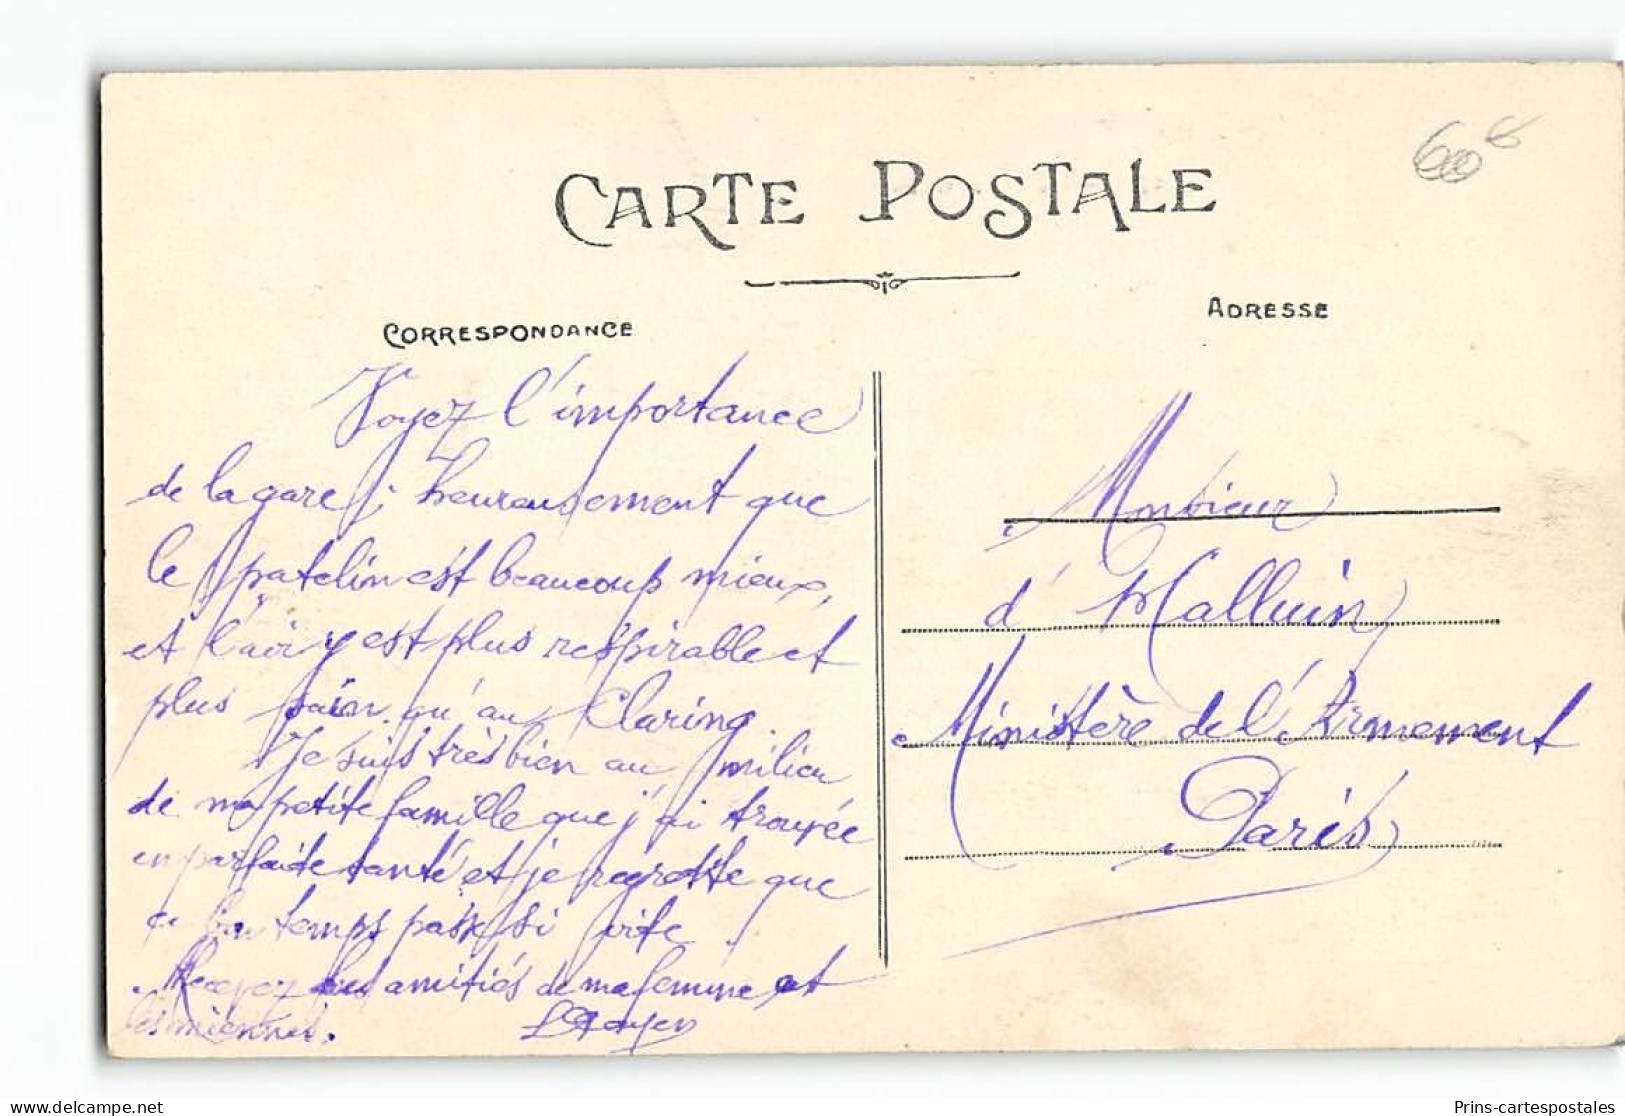 CARTE POSTALE
CORRESPONDANCE
ADRESSE
Voyez l'importance
de la gare, heureusement que
le patelin est beaucoup mieux,
et l'air y est plus respirable et
plus sain qu'au Claring.
Je suis très bien au milieu
de ma petite famille que j'ai trouvée
en parfaite santé et je regrette que
ce bon temps passe si vite.
Recevez les amitiés de ma femme et
les miennes.
Monsieur
d'Halluin
Ministère de l'Armement
Paris
Prins-cartespostales